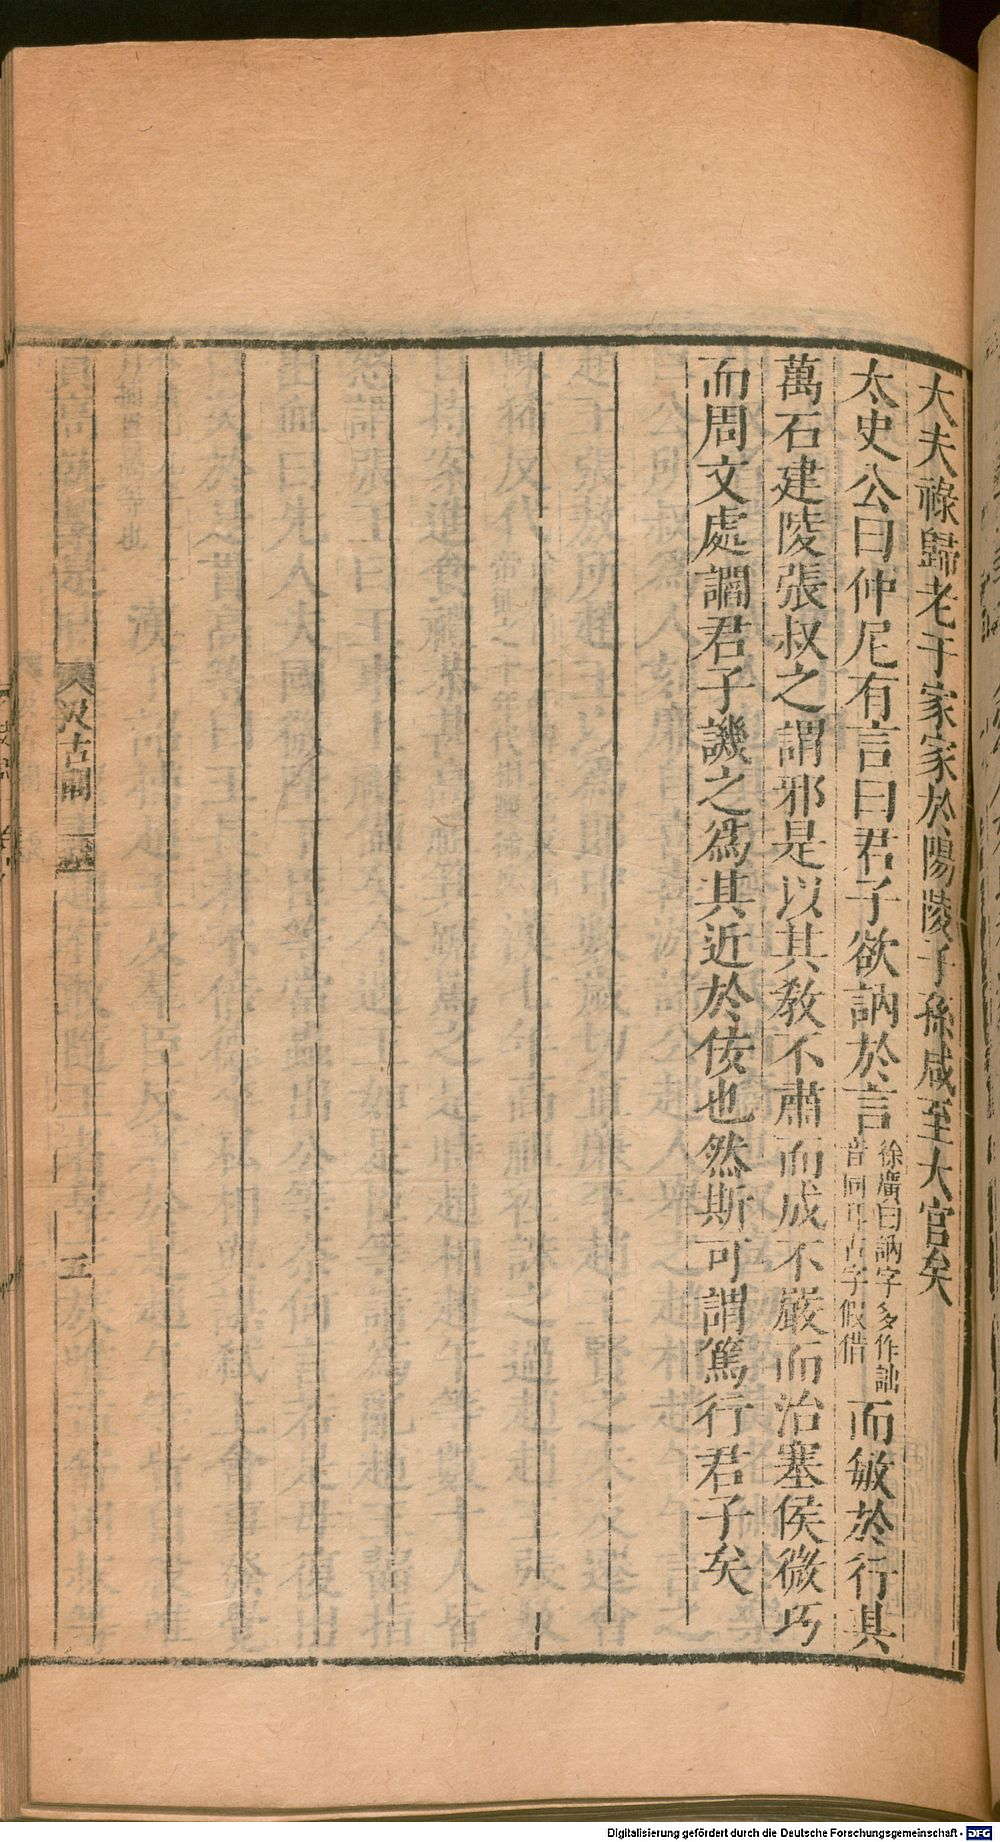 大夫祿歸老于家家於陽陵子孫咸至大官矣
太史公曰仲尼有言曰君子欲訥於言徐廣曰訥字多作詘音同耳古字假借而敏於行其
萬石建陵張叔之謂邪是以其教不肅而成不嚴而治塞侯微巧
而周文處讇君子譏之為其近於佞也然斯可謂篤行君子矣
汲古閣
五
Digitalisierung gefördert durch die Deutsche Forschungsgemeinschaft - DFG